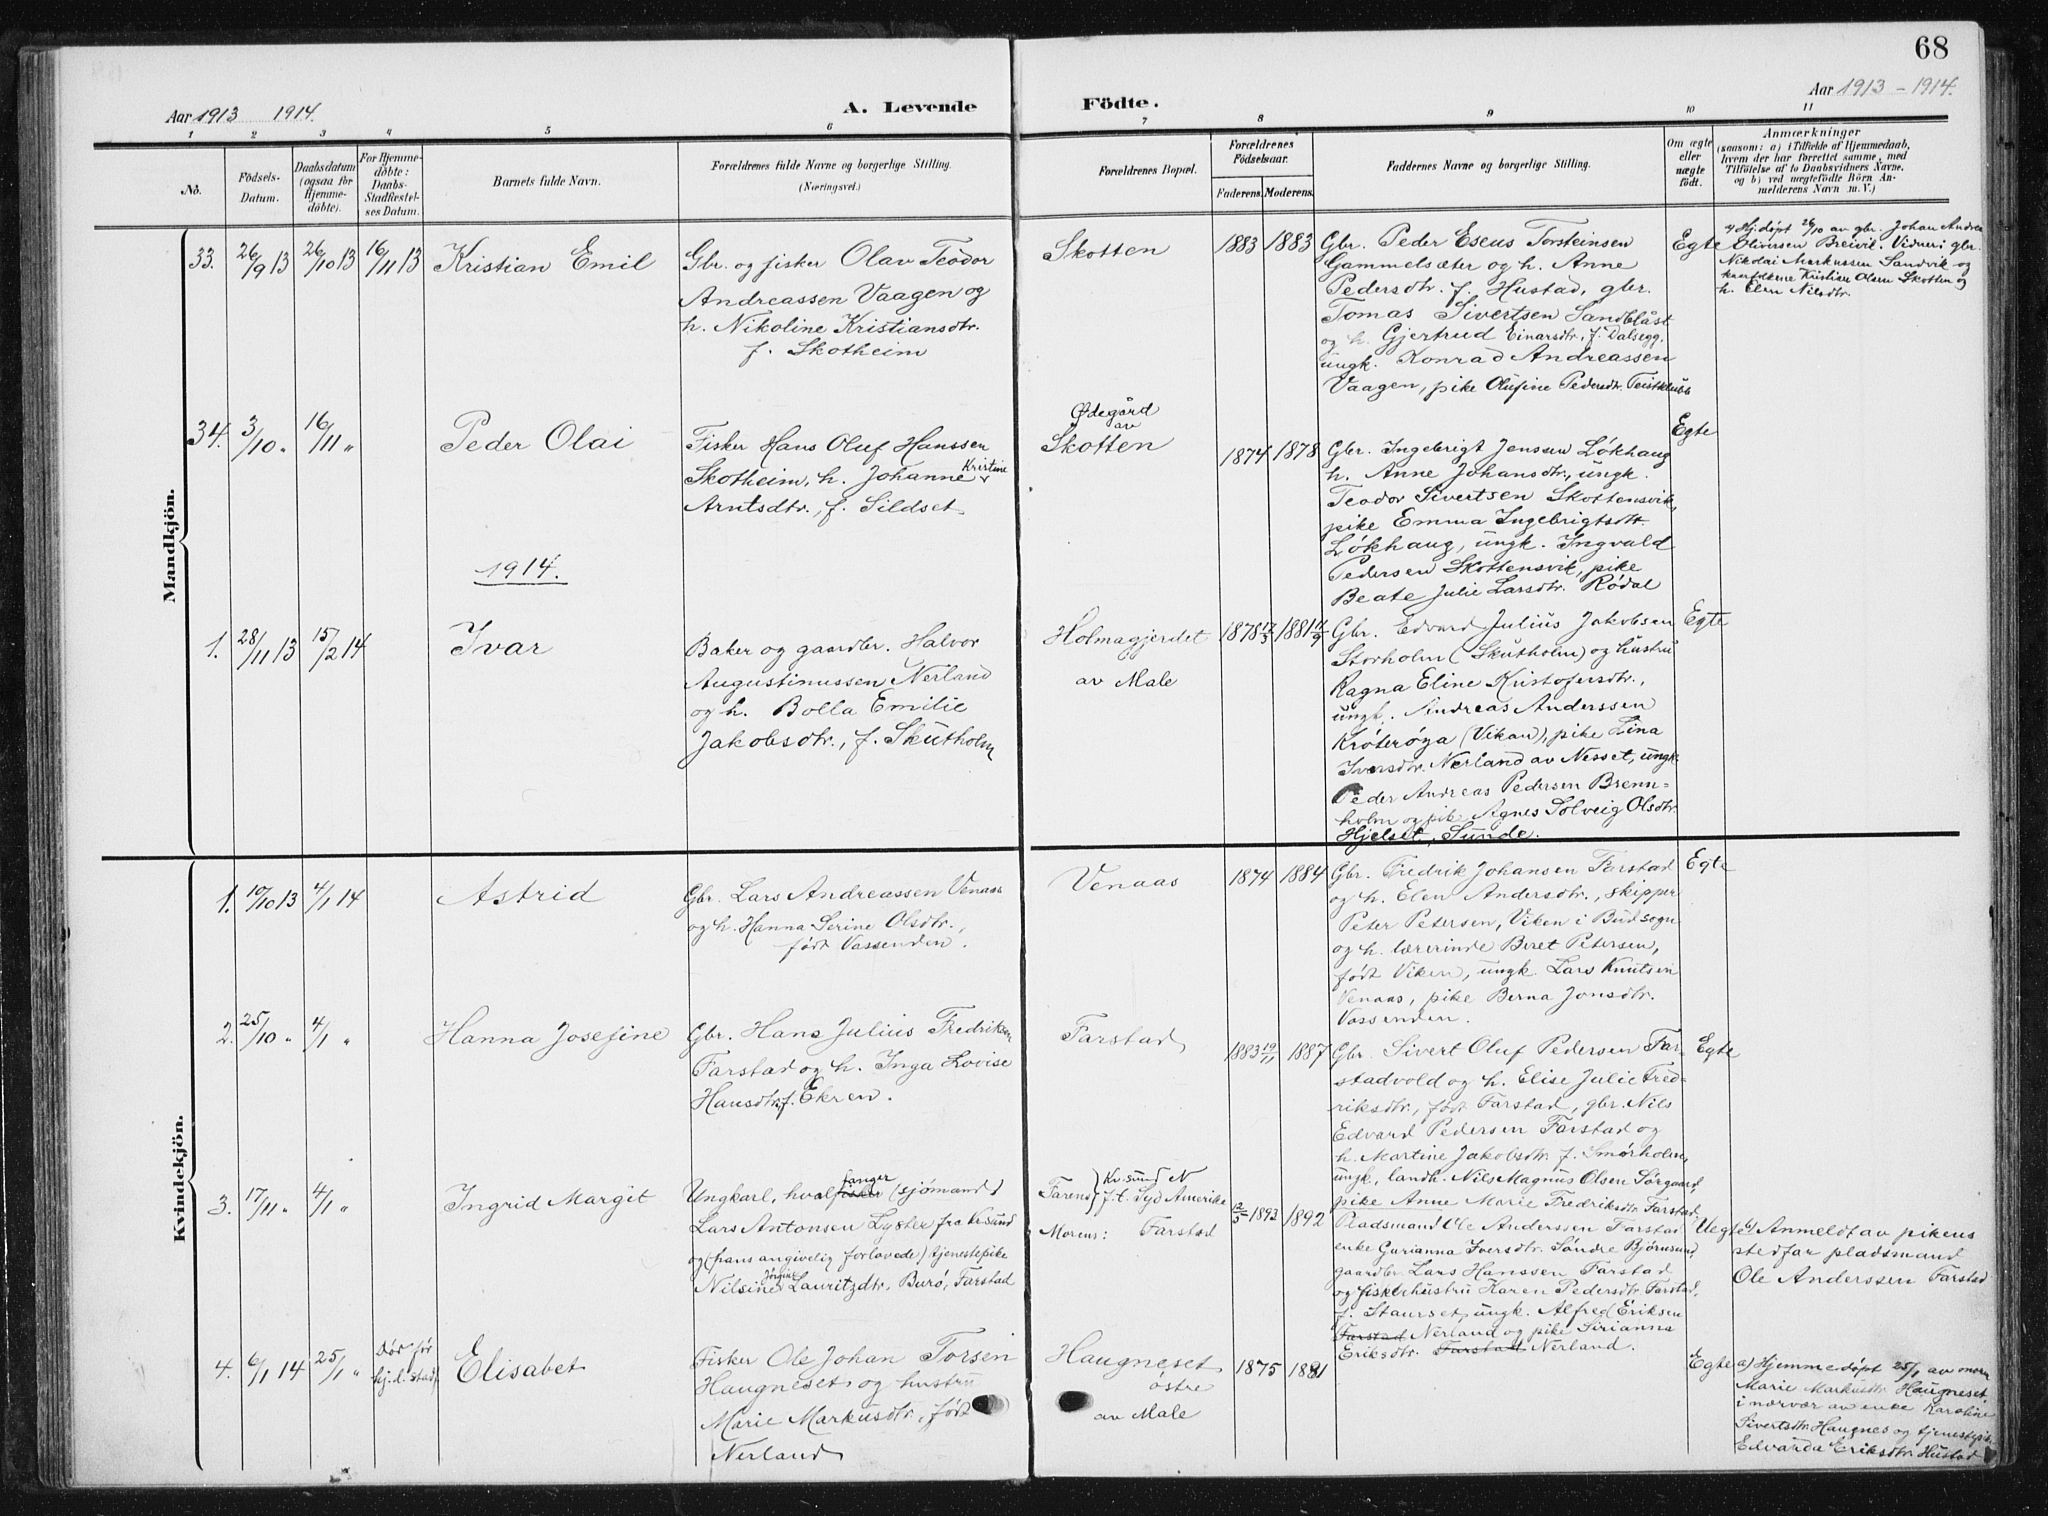 68
Aar 1913 1914.
A. Levende Födte.
Aar 1913 - 1914.
1 2 3 4 5 6 7 8 9 10 11
No.
Födsels-
Datum.
Daabsdatum
(ogsaa for
Hjemme-
döbte).
For Hjemme-
döbte:
Daabs-
Stadfæstel-
ses Datum.
Barnets fulde Navn.
Forældrenes fulde Navne og borgerlige Stilling.
(Næringsvei.)
Forældrenes Bopæl.
Forældrenes
Födselsaar.
Faderens. Moderens.
Faddernes Navne og borgerlige Stilling.
Om ægte
eller
uægte
födt.
Anmærkninger
(saasom: a) i Tilfælde af Hjemmedaab,
hvem der har forrettet samme, med
Tilföielse af to Daabsvidners Navne,
og b) ved uægtefödte Börn An-
melderens Navn m. V.)
Mandkjön.
33. 26/9 13 26/10 13 16/11 13
Kristian Emil
Gbr. og fisker Olav Teodor
Andreassen Vaagen og
h. Nikoline Kristiansdtr.
f. Skotheim
Skotten
1883 1883
Gbr. Peder Eseus Torsteinsen
Gammelsæter og h. Anne
Pedersdtr. f. Hustad, gbr.
Tomas Sivertsen Sandblåst
og h. Gjertrud Einarsdtr. f. Dalsegg.
ungk. Konrad Andreassen
Vaagen, pike Olufine Pedersdtr. Teistklub
Egte
a/ Hj.døpt 26/10 av gbr. Johan Andrea
Oliversen Breivik. Vidner: gbr.
Nikolai Markussen Sandvik og
Kristian Olsen Skotten og
h. Elen Nilsdtr.
34. 3/10 " 16/11 "
Peder Olai
Fisker Hans Oluf Hanssen
Skotheim, h. Johanne Kristine
Arntsdtr., f. Sildset
Ødegård
av
Skotten
1874 1878
Gbr. Ingebrigt Jensen Løkhaug
h. Anne Johansdtr., ungk.
Teodor Sivertsen Skottensvik,
pike Emma Ingebrigtsdtr.
Løkhaug, ungk. Ingvald
Pedersen Skottensvik, pike
Beate Julie Larsdtr. Rødal
Egte
1914.
1. 28/11 13 15/2 14
Ivar
Baker og gaardbr. Halvor
Augustinussen Nerland
og h. Bolla Emilie
Jakobsdtr., f. Skutholm
Holmagjerdet
av Male
1878 17/3 1881 11/9
Gbr. Edvard Julius Jakobsen
Storholm (Skutholm) og hustru
Ragna Eline Kristofersdtr.,
ungk. Andreas Anderssen
Krøterøya (Vikan), pike Lina
Iversdtr. Nerland av Nesset, ungk.
Peder Andreas Pedersen Brenn-
holm og pike Agnes Solveig Olsdtr.
Hjelset, Sunde.
Egte
Kvindekjön.
1. 10/10 13 4/1 14
Astrid
Gbr. Lars Andreassen Venaas
og h. Hanna Serine Olsdtr.,
født Vassenden.
Venaas
1874 1884
Gbr. Fredrik Johansen Farstad
og h. Elen Andersdtr., skipper
Peter Petersen, Viken i Budsogn
og h. lærerinde Beret Petersen,
født Viken, ungk. Lars Knutsen
Venaas, pike Berna Jonsdtr.
Vassenden.
Egte
2. 25/10 " 4/1 "
Hanna Josefine
Gbr. Hans Julius Fredriksen
Farstad og h. Inga Lovise
Hansdtr. f. Ekren.
Farstad
1883 19/11 1887
Gbr. Sivert Oluf Pedersen Far-
stadvold og h. Elise Julie Fred-
riksdtr., født Farstad, gbr. Nils
Edvard Pedersen Farstad og
h. Martine Jakobsdtr. f. Smørholm,
ungk, landh. Nils Magnus Olsen Sørgaard,
pike Anne Marie Fredriksdtr. Farstad
Egte
3. 17/11 " 4/1 "
Ingrid Margit
Ungkarl, hvalfisker fanger (sjømand)
Lars Antonsen Lyster fra Kr.sund
og (hans angivelig forlovede) tjenestepike
Nilsine Jørgine Lauritzdtr. Burø, Farstad
Farens: Kr.sund N
f.t. Syd Amerika
Morens: Farstad
12/5 1893 1892
Pladsmand Ole Anderssen Farstad
enke Gurianna Iversdtr. Søndre Bjørnsund,
gaardbr. Lars Hanssen Farstad
og fiskerhustru Karen Pedersdtr. Farstad,
f. Staurset, ungk. Alfred Eriksen
Farstad Nerland og pike Sirianna
Eriksdtr. Farstad Nerland.
Uegte
Anmeldt av pikens
stedfar pladsmand
Ole Anderssen Farstad
4. 6/1 14 25/1 "
Død før
hj.d. stadf.
Elisabet
Fisker Ole Johan Torsen
Haugneset og hustru
Marie Markusdtr., født
Nerland
Haugneset
østre
av Male
1875 1881
Egte
a) Hjemmedøpt 25/1 av moren
Marie Markusdtr. Haugneset
i nærvær av enke Karoline
Sivertsdtr. Haugnes og tjenestepike
Edvarda Eriksdtr. Hustad